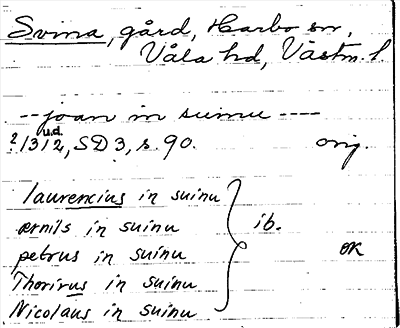 Svina, gård, Harbo sn,
Våla hd, Västm. l.
--joan in suinu----
2/3 u.d. 12, SD 3, s. 90. orig.
laurencius in suinu
ærnils in suinu ib.
petrus in suinu OK
Thorirus in suinu
Nicolaus in suinu